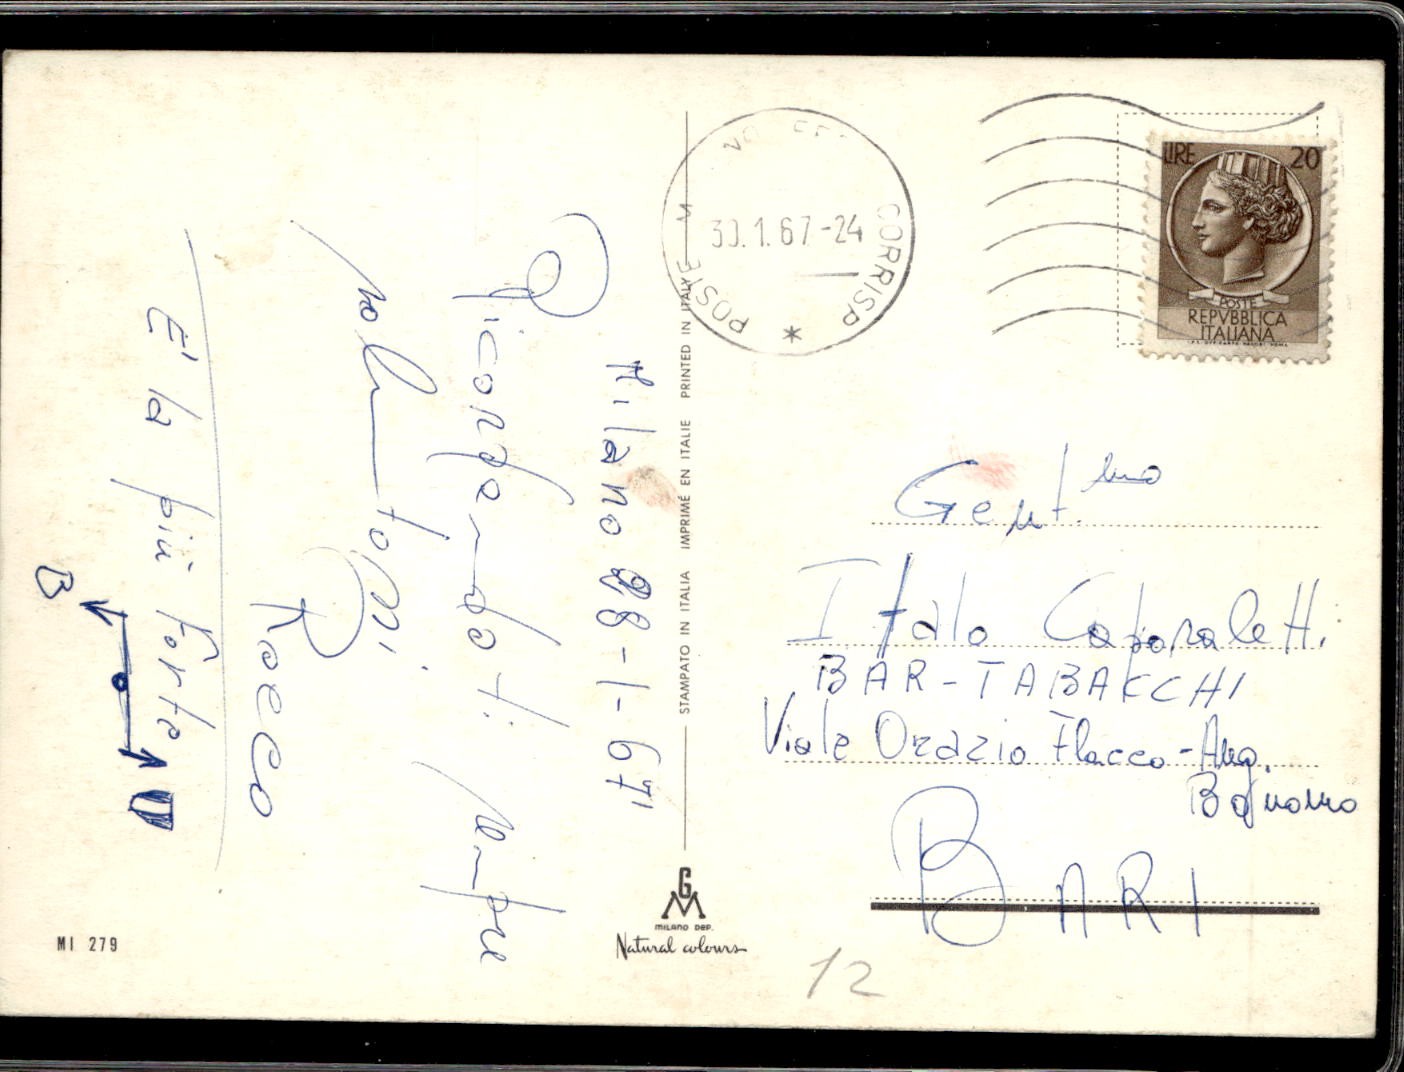 Milano 28-1-67
Ricordandoti sempre
salutoni.
Rocco
E' la più forte
B
STAMPATO IN ITALIA IMPRIMÉ EN ITALIE PRINTED IN ITALY
POSTE CORRISP
30.1.67-24
LIRE 20
POSTE
REPVBBLICA
ITALIANA
Gent.mo
Italo Caporaletti
BAR-TABACCHI
Viale Orazio Flacco-Ang.
BARI
GM
MILANO DEP.
Natural colours
MI 279
12